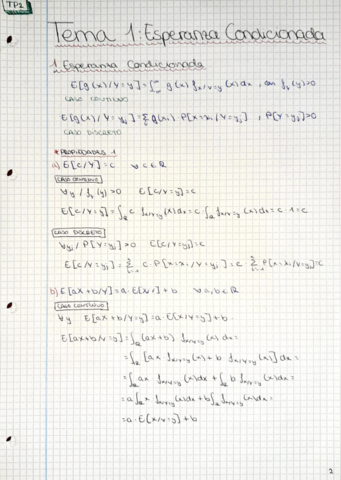 TP2
Tema 1: Esperanza Condicionada
1. Esperanza Condicionada
E[g(x)/Y=y] = ∫ g(x) f_{x/Y=y}(x)dx, con f_Y(y)>0
CASO CONTINUO
E[g(x)/Y=y_j] = Σ g(x_i) P[X=x_i/Y=y_j], P[Y=y_j]>0
CASO DISCRETO
* PROPIEDADES 1
a) E[c/Y]=c ∀c∈ℝ
CASO CONTINUO
∀y / f_Y(y)>0 E[c/Y=y]=c
E[c/Y=y]=∫_ℝ c f_{x/Y=y}(x)dx = c ∫_ℝ f_{x/Y=y}(x)dx = c·1 = c
CASO DISCRETO
∀y_j / P[Y=y_j]>0 E[c/Y=y_j]=c
E[c/Y=y_j] = Σ c·P[X=x_i/Y=y_j] = c Σ P[X=x_i/Y=y_j]=c
b) E[aX+b/Y]=a·E[X/Y]+b ∀a,b∈ℝ
CASO CONTINUO
∀y E[aX+b/Y=y]=a·E[X/Y=y]+b
E[ax+b/Y=y]=∫_ℝ (ax+b) f_{x/Y=y}(x)dx =
=∫_ℝ [ax f_{x/Y=y}(x)+b f_{x/Y=y}(x)]dx =
=∫_ℝ ax f_{x/Y=y}(x)dx + ∫_ℝ b f_{x/Y=y}(x)dx =
=a∫_ℝ x f_{x/Y=y}(x)dx + b∫_ℝ f_{x/Y=y}(x)dx =
=a·E[X/Y=y]+b
2